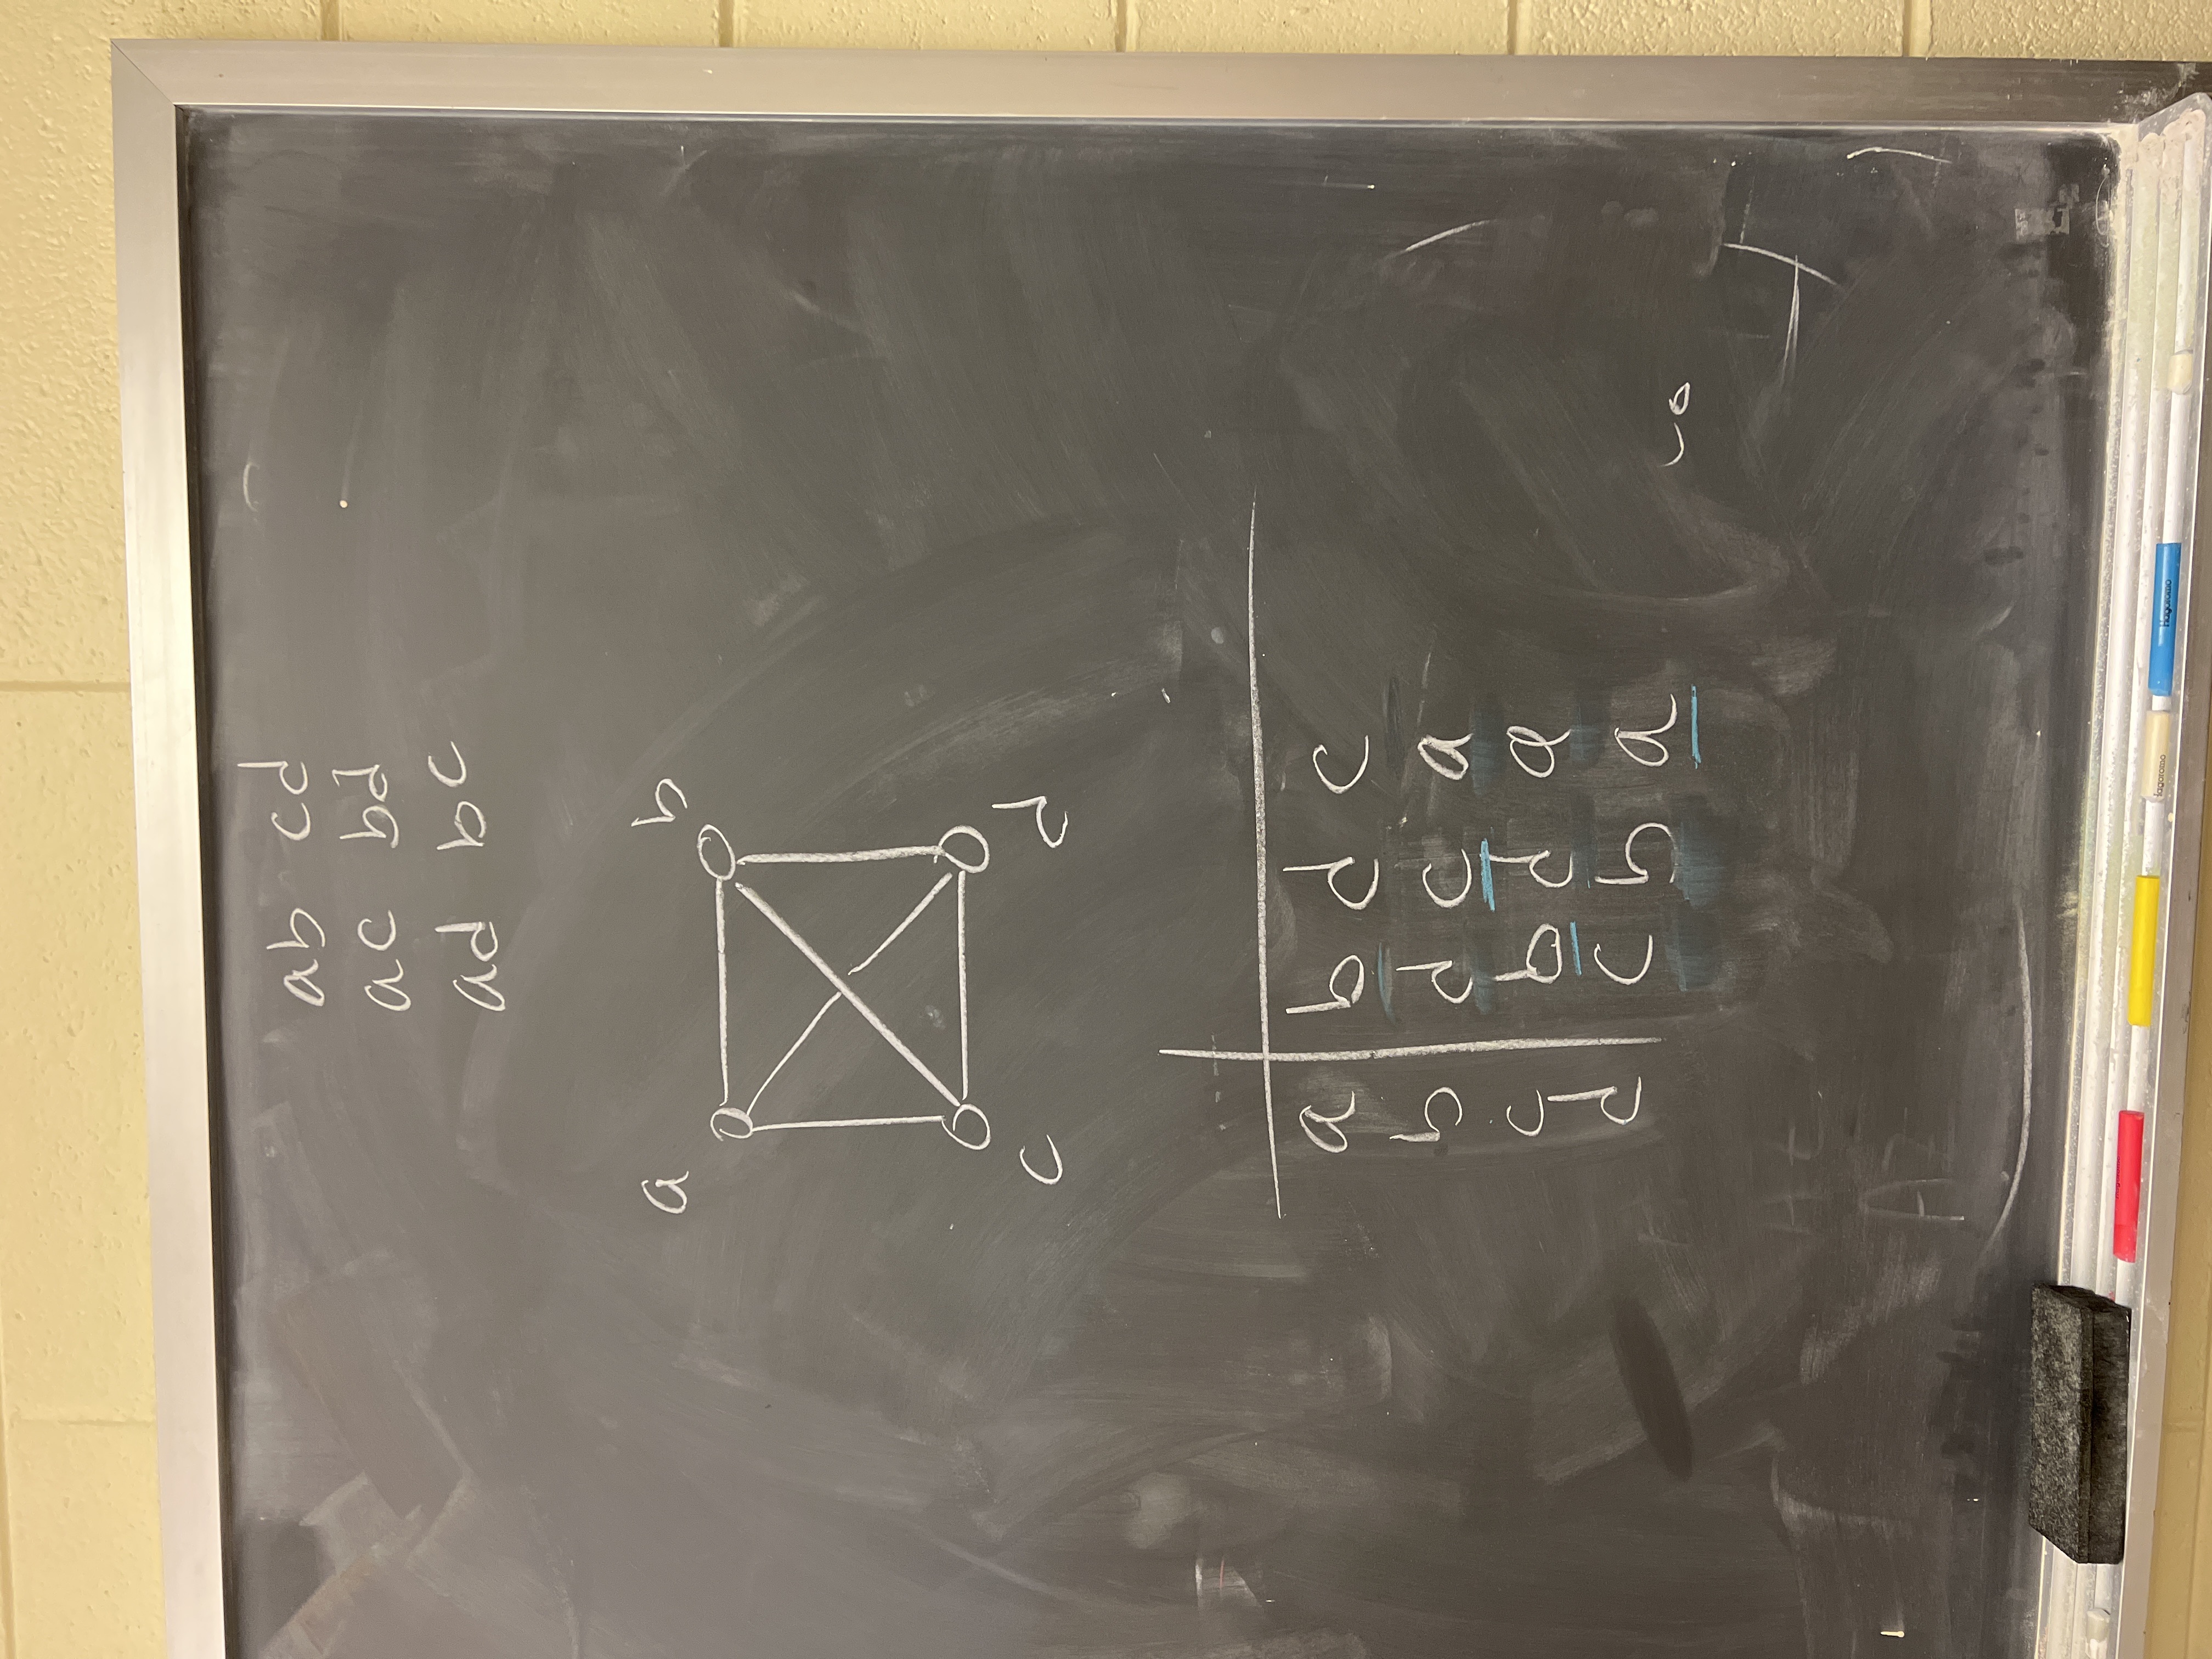 ab cd
ac bd
ad bc
a b
c d
a b d c
b d c a
c b d a
d c b a
Hagoromo Hagoromo